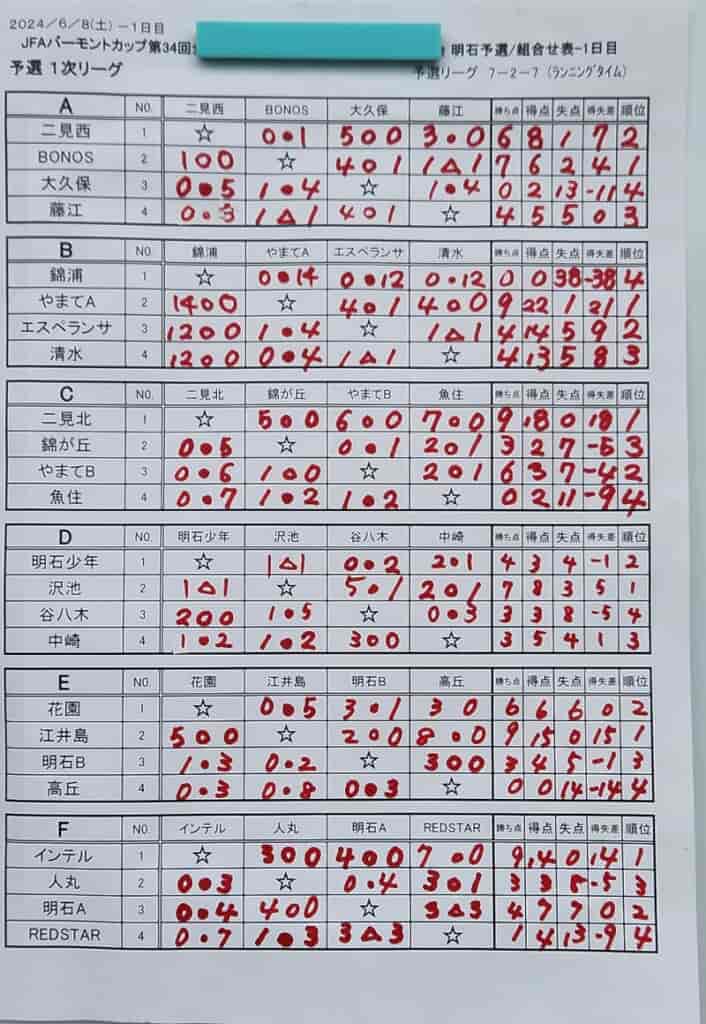 2024/6/8(土)-1日目
JFAバーモントカップ第34回 明石予選/組合せ表-1日目
予選 1次リーグ 予選リーグ 7-2-7 (ランニングタイム)
A NO. 二見西 BONOS 大久保 藤江 勝ち点 得点 失点 得失差 順位
二見西 1 ☆ 0●1 5○0 3○0 6 8 1 7 2
BONOS 2 1○0 ☆ 4○1 1△1 7 6 2 4 1
大久保 3 0●5 1●4 ☆ 1●4 0 2 13 -11 4
藤江 4 0●3 1△1 4○1 ☆ 4 5 5 0 3
B NO. 錦浦 やまてA エスペランサ 清水 勝ち点 得点 失点 得失差 順位
錦浦 1 ☆ 0●14 0●12 0●12 0 0 38 -38 4
やまてA 2 14○0 ☆ 4○1 4○0 9 22 1 21 1
エスペランサ 3 12○0 1●4 ☆ 1△1 4 14 5 9 2
清水 4 12○0 0●4 1△1 ☆ 4 13 5 8 3
C NO. 二見北 錦が丘 やまてB 魚住 勝ち点 得点 失点 得失差 順位
二見北 1 ☆ 5○0 6○0 7○0 9 18 0 18 1
錦が丘 2 0●5 ☆ 0●1 2○1 3 2 7 -5 3
やまてB 3 0●6 1○0 ☆ 2○1 6 3 7 -4 2
魚住 4 0●7 1●2 1●2 ☆ 0 2 11 -9 4
D NO. 明石少年 沢池 谷八木 中崎 勝ち点 得点 失点 得失差 順位
明石少年 1 ☆ 1△1 0●2 2○1 4 3 4 -1 2
沢池 2 1△1 ☆ 5○1 2○1 7 8 3 5 1
谷八木 3 2○0 1●5 ☆ 0●3 3 3 8 -5 4
中崎 4 1●2 1●2 3○0 ☆ 3 5 4 1 3
E NO. 花園 江井島 明石B 高丘 勝ち点 得点 失点 得失差 順位
花園 1 ☆ 0●5 3○1 3 0 6 6 6 0 2
江井島 2 5○0 ☆ 2○0 8○0 9 15 0 15 1
明石B 3 1●3 0●2 ☆ 3○0 3 4 5 -1 3
高丘 4 0●3 0●8 0●3 ☆ 0 0 14 -14 4
F NO. インテル 人丸 明石A REDSTAR 勝ち点 得点 失点 得失差 順位
インテル 1 ☆ 3○0 4○0 7○0 9 14 0 14 1
人丸 2 0●3 ☆ 0●4 3○1 3 3 8 -5 3
明石A 3 0●4 4○0 ☆ 3△3 4 7 7 0 2
REDSTAR 4 0●7 1●3 3△3 ☆ 1 4 13 -9 4